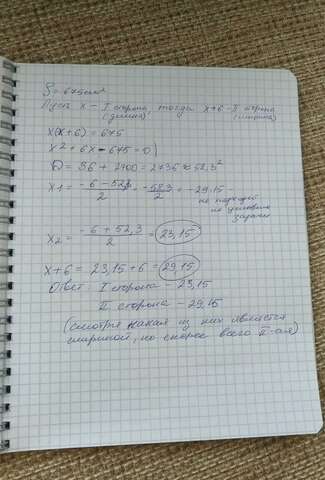 S = 675 см²
Пусть x – I сторона, тогда x+6 – II сторона
(длина) (ширина)
x(x+6) = 675
x² + 6x - 675 = 0
D = 36 + 2700 = 2736 ≈ 52,3²
x1 = (-6 - 52,3)/2 = -58,3/2 = -29.15 -
не подходит
по условию
задачи
x2 = (-6 + 52,3)/2 = 23,15
x+6 = 23,15+6 = 29,15
Ответ: I сторона – 23,15
II сторона – 29,15
(смотря какая из них является
шириной, но скорее всего II-ая)